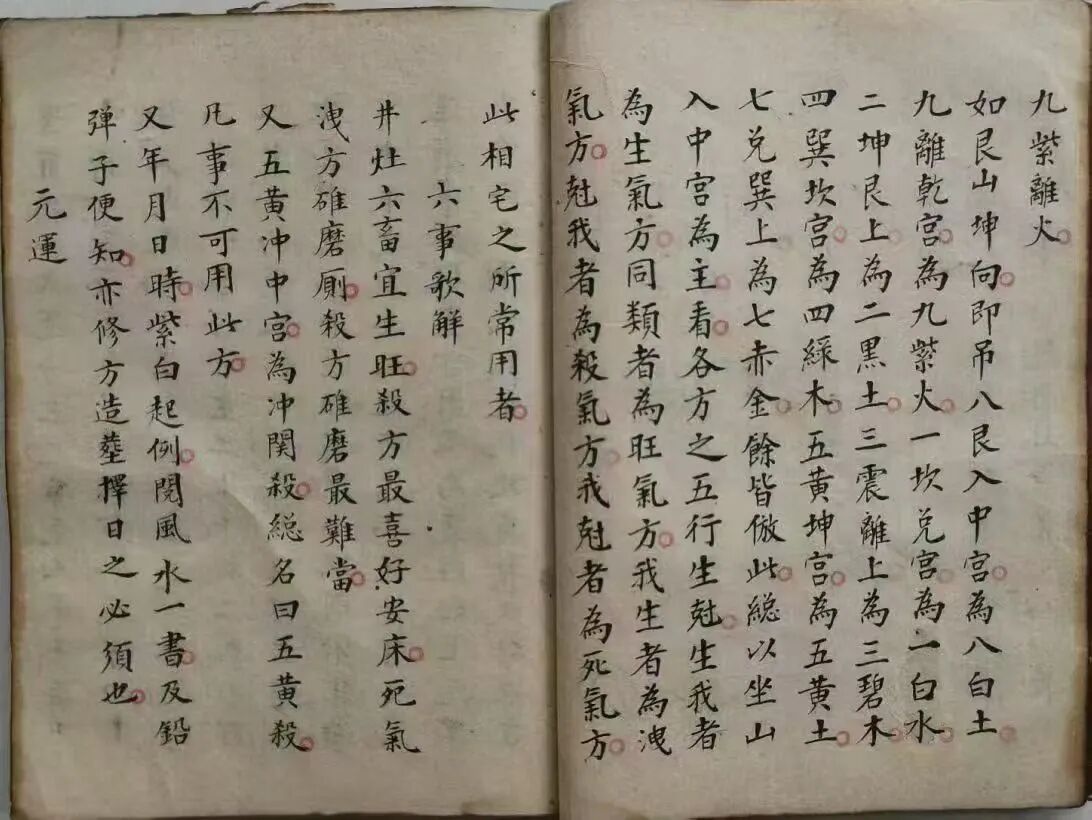 九紫離火
如艮山坤向即吊八艮入中宮為八白土
九離乾宮為九紫火一坎兌宮為一白水
二坤艮上為二黑土三震離上為三碧木
四巽坎宮為四綠木五黃坤宮為五黃土
七兌巽上為七赤金餘皆倣此總以坐山
入中宮為主看各方之五行生尅生我者
為生氣方同類者為旺氣方我生者為洩
氣方尅我者為殺氣方我尅者為死氣方
此相宅之所常用者
六事歌解
井灶六畜宜生旺殺方最喜好安床死氣
洩方碓磨厠殺方碓磨最難當
又五黃冲中宮為冲関殺総名曰五黃殺
凡事不可用此方
又年月日時紫白起例閱風水一書及鉛
弹子便知亦修方造塟擇日之必須也
元運